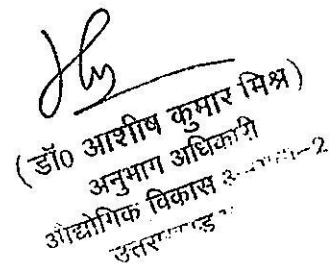 (डॉ0 आशीष कुमार मिश्र)
अनुभाग अधिकारी
औद्योगिक विकास -2